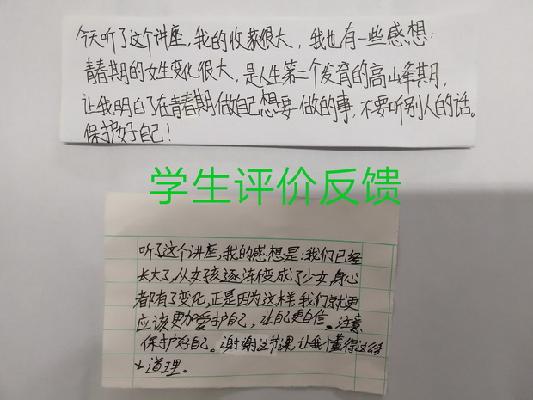 今天听了这个讲座,我的收获很大,我也有一些感想.
青春期的女生变化很大,是人生第二个发育的高山峰期,
让我明白了在青春期做自己想要做的事,不要听别人的话。
保护好自己!
学生评价反馈
听了这个讲座,我的感想是:我们已经
长大了,从女孩逐渐变成了少女,身心
都有了变化,正是因为这样我们就更
应该更加爱护自己,让自己更自信。注意
保护好自己。谢谢这节课让我懂得这些
道理。